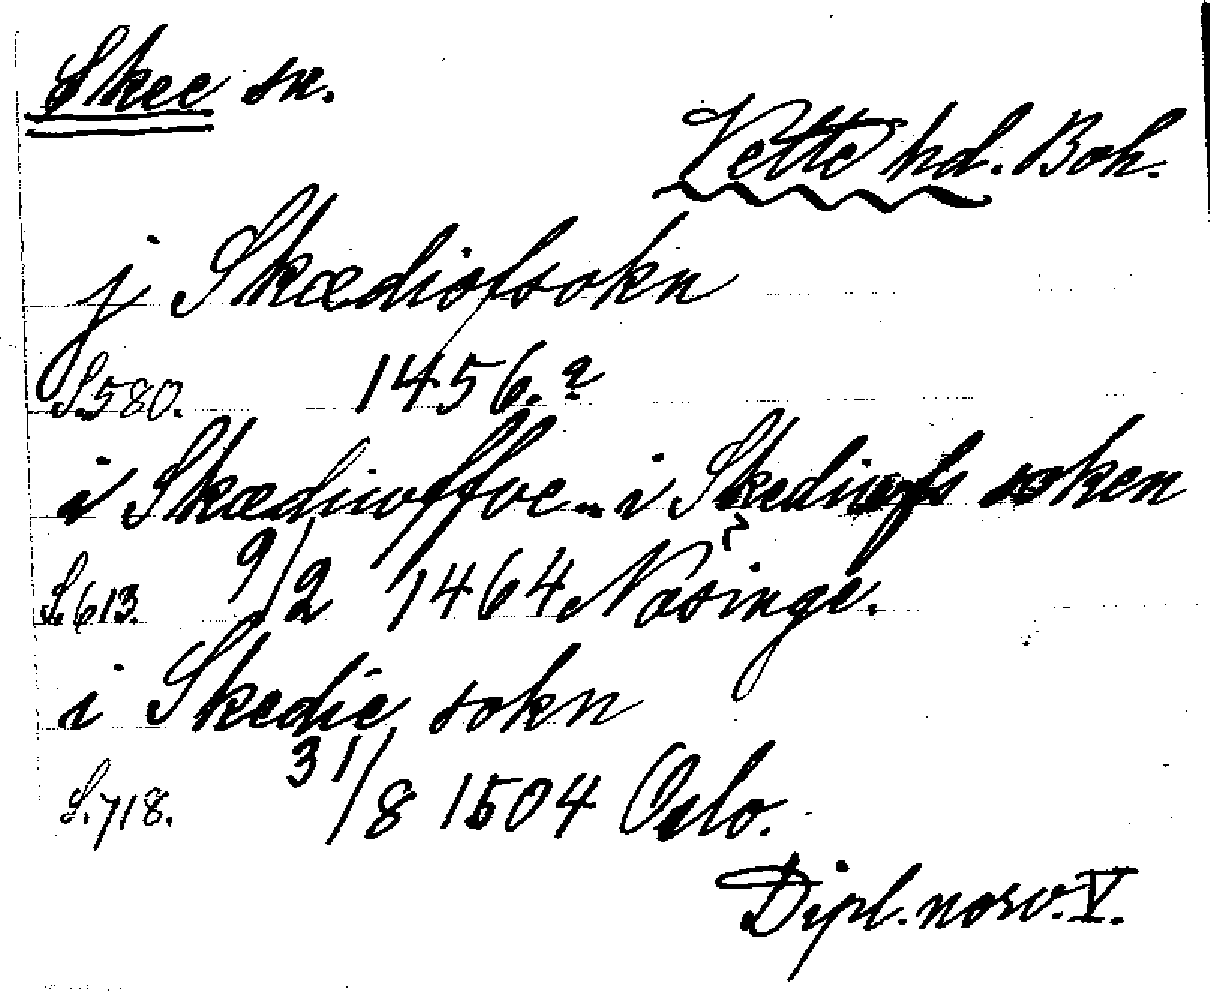 Skee sn.
Vette hd. Boh.
j Skædiofsokn
S. 580. 1456.?
i Skædiuoffue .. i Skediuofs soken
S. 613. 9/2 1464 Næsinge. ?
i Skedie sokn
S. 718. 31/8 1504 Oslo.
Dipl. norv. V.